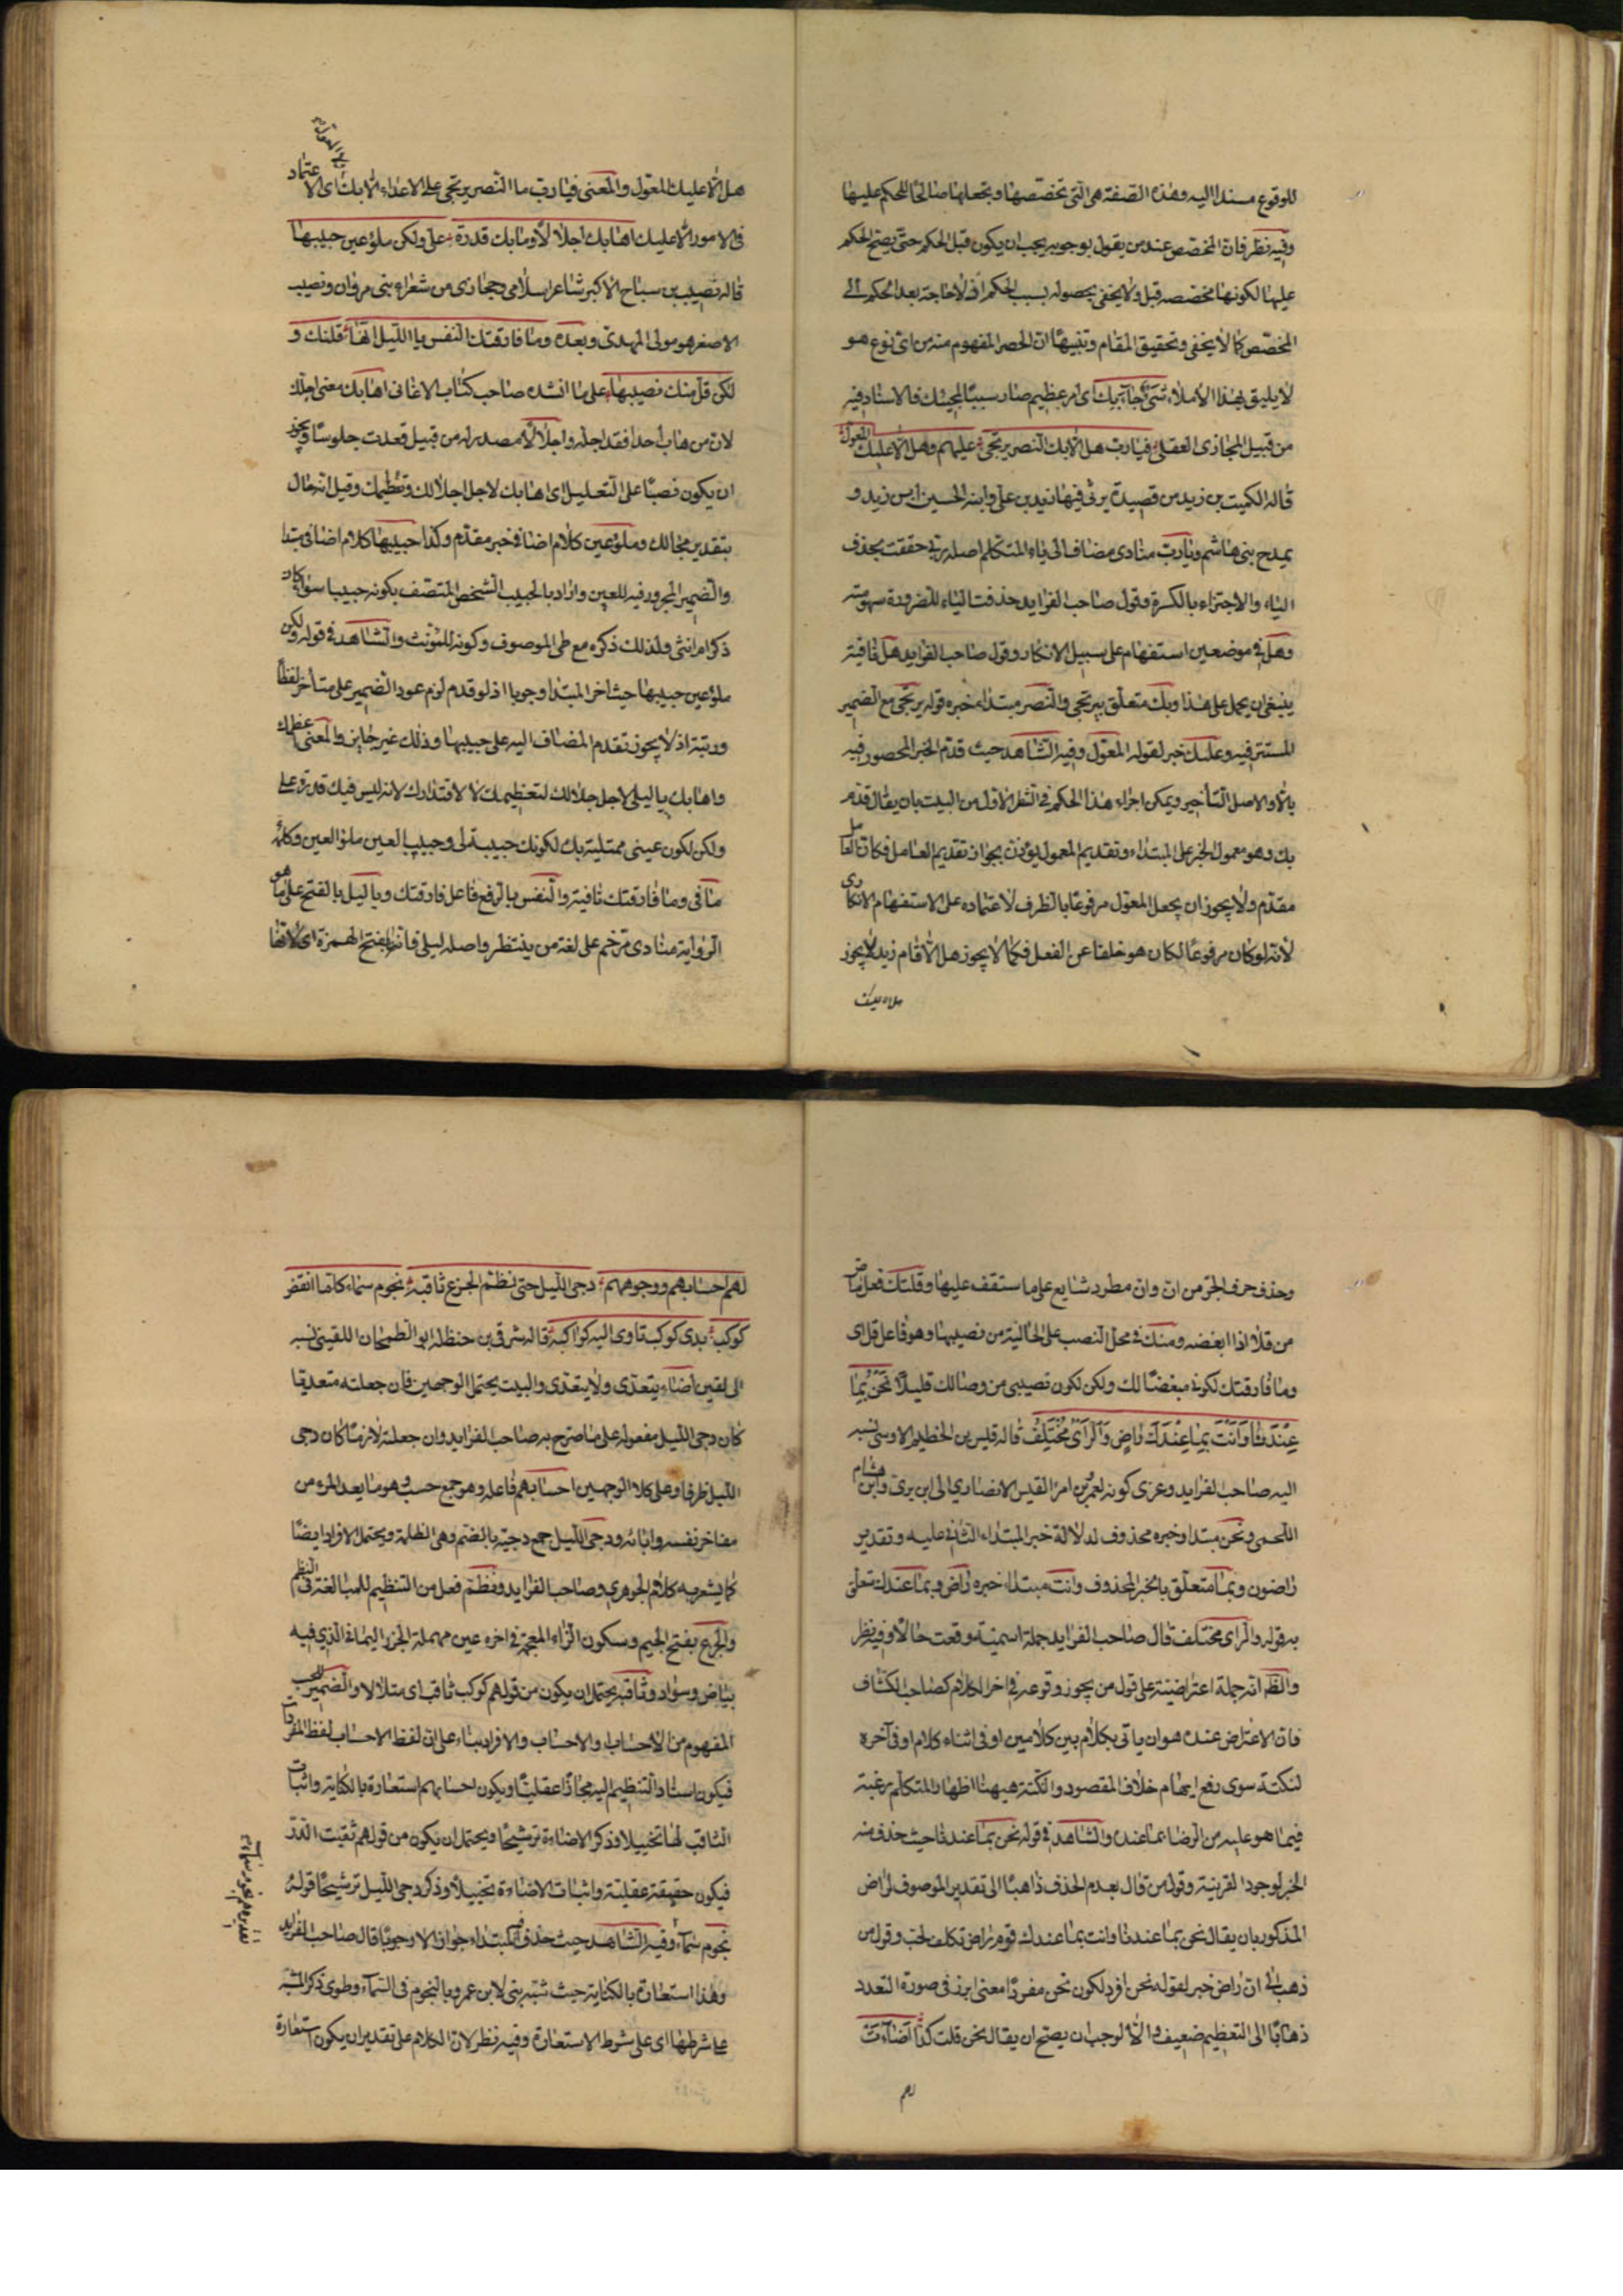 للوقوع مسندا اليه وهذه الصفة هى التى تخصصها وتجعلها صالحا للحكم عليها
وفيه نظر فان المخصص عند من يقول بوجوبه يجب ان يكون قبل الحكم حتى يصح الحكم
عليها لكونها مخصصه قبل ولا يخفى بحصوله بسبب الحكم اذ لا حاجة بعد الحكم الى
المخصص كما لا يخفى وتحقيق المقام وتنبيها ان الحصر المفهوم منه من اى نوع هو
لا يليق بهذا الاملاء شىء جاء بك اى امر عظيم صار سببا لمجيئك فالاسناد فيه
من قبيل المجازى العقلى فيا رب هل الا بك النصر يرتجى عليهم وهل الا عليك المعول
قاله الكميت بن زيد من قصيدة يرثى فيها زيد بن على وابنه الحسين ابن زيد و
يمدح بنى هاشم ويا رب منادى مضاف الى ياء المتكلم اصله ربى حققت بحذف
الياء والاجتزاء بالكسرة وقول صاحب الفرايد حذفت الياء للضرورة سهو منه
وهل فى موضعين استفهام على سبيل الانكار وقول صاحب الفرايد هل نافية
ينبغى ان يحمل على هذا وبك متعلق بيرتجى والنصر مبتداء خبره قوله يرتجى مع الضمير
المستتر فيه وعليك خبر لقوله المعول وفيه الشاهد حيث قدم الخبر المحصور فيه
بالا والاصل التأخير ويمكن اجراء هذا الحكم فى الشطر الاول من البيت بان يقال قدم
بك وهو معمول الخبر على المبتداء وتقديم المعمول يؤذن بجواز تقديم العامل فكان العامل
مقدم ولا يجوز ان يجعل المعول مرفوعا بالظرف لاعتماده على الاستفهام الانكارى
لانه لو كان مرفوعا لكان هو خلفا عن الفعل فكما لا يجوز هل الا قام زيد لا يجوز
هل الا عليك
هل الا عليك المعول والمعنى فيا رب ما النصر يرتجى على الاعداء الا بك اى الاعتماد
فى الامور الا عليك اهابك اجلالا وما بك قدرة على ولكن ملؤ عين حبيبها
قاله نصيب بن سباح الاكبر شاعر اسلامى وحجازى من شعراء بنى مروان ونصيب
الاصغر هو مولى المهدى وبعده وما فارقتك النفس يا الليل انها قلتك و
لكن قل منك نصيبها على ما انشده صاحب كتاب الاغانى اهابك معنى اجلك
لان من هاب احدا فقد اجله واجلالا مصدر له من قبيل قعدت جلوسا ويجوز
ان يكون نصبا على التعليل اى اهابك لاجل اجلالك وتعظيمك وقيل انه حال
بتقدير مجالك وملؤ عين كلام اضافى خبر مقدم وكذا حبيبها كلام اضافى مبتدا
والضمير المجرور فيه للعين واراد بالحبيب الشخص المتصف بكونه حبيبا سواء كان
ذكرا ام انثى ولذلك ذكره مع طى الموصوف وكونه للمؤنث والشاهد فى قوله ولكن
ملؤ عين حبيبها حيث اخر المبتدا وجوبا اذ لو قدم لزم عود الضمير على متأخر لفظا
ورتبة اذ لا يجوز تقدم المضاف اليه على حبيبها وذلك غير جايز والمعنى اعظمك
واهابك يا ليلى لاجل جلالك لتعظيمك لا لاقتدارك لانه ليس فيك قدرة على
ولكن لكون عينى ممتلية بك لكونك حبيبة لى وحبيب العين ملؤ العين وكلمة
ما فى وما فارقتك نافية والنفس بالرفع فاعل فارقتك ويا ليل بالفتح على ما هو
الرواية منادى مرخم على لغة من ينتظر واصله ليلى فانها بفتح الهمزة اى لانها
وحذف حرف الجر من ان وان مطرد شايع على ما ستقف عليها وقلتك فعل ماض
من قلا اذا ابغضه ومنك فى محل النصب على الحالية من نصيبها وهو فاعل قل اى
وما فارقتك لكونى مبغضا لك ولكن لكون نصيبى من وصالك قليلا نَحْنُ بِمَا
عِنْدَنَا وَاَنْتَ بِمَا عِنْدَكَ رَاضٍ وَالرَّاىُ مُخْتَلِفُ قاله قيس بن الخطيم الاوسى نسبه
اليه صاحب الفرايد وعزى كونه لعمرو بن امرء القيس الانصارى الى ابن برى وابن هشام
اللخمى ونحن مبتدا وخبره محذوف لدلالة خبر المبتداء الثانى عليه وتقدير
راضون وبما متعلق بالخبر المحذوف وانت مبتداء خبره راض وبما عندك متعلق
به قوله والراى مختلف قال صاحب الفرايد جملة اسمية وقعت حالا وفيه نظر
والظ انه جملة اعتراضية على قول من يجوز وقوعه فى اخر الكلام كصاحب الكشاف
فان الاعتراض عنده هو ان ياتى بكلام بين كلامين او فى اثناء كلام او فى آخره
لنكتة سوى رفع ايهام خلاف المقصود والنكتة هيهنا اظهار المتكلم رغبته
فيما هو عليه من الرضا بما عنده والشاهد فى قوله نحن بما عندنا حيث حذف منه
الخبر لوجود القرينة وقول من قال بعدم الحذف ذاهبا الى تقدير الموصوف لراض
المذكور بان يقال نحن بما عندنا وانت بما عندك قوم راض تكلف بحت وقول من
ذهب الى ان راض خبر لقوله نحن افرد لكون نحن مفردا معنى ابرز فى صورة التعدد
ذهابا الى التعظيم ضعيف والا لوجب ان يصح ان يقال نحن قلت كذا اَضَاءَتْ
لهم
لهم احسابهم ووجوههم دجى الليل حتى نظم الجزع ثاقبه نجوم سماء كلما انقض
كوكب بدى كوكب تاوى اليه كواكبه قاله شرقى بن حنظلة ابو الطمحان القينى نسبه
الى لقين اضاء يتعدى ولا يتعدى والبيت يحتمل الوجهين فان جعلته متعديا
كان دجى الليل مفعوله على ما صرح به صاحب الفرايد وان جعلته لازما كان دجى
الليل ظرفا وعلى كلا الوجهين احسابهم فاعله وهو جمع حسب وهو ما يعد المرء من
مفاخر نفسه وابائه ودجى الليل جمع دجية بالضم وهى الظلمة ويحتمل الافراد ايضا
كما يشعر به كلام الجوهرى وصاحب الفرايد ونظم فعل من التنظيم للمبالغة فى النظم
والجزع بفتح الجيم وسكون الزاء المعجمة فى اخره عين مهملة الخرز اليمانى الذى فيه
بياض وسواد وثاقبه يحتمل ان يكون من قولهم كوكب ثاقب اى متلالا والضمير للحسب
المفهوم من الاحساب او الاحساب والافراد بناء على ان لفظ الاحساب لفظ المفردات
فيكون اسناد التنظيم اليه مجازا عقليا ويكون احسابهم استعارة بالكناية واثبات
الثاقب لها تخييلا وذكر الاضاءة ترشيحا ويحتمل ان يكون من قولهم ثقبت الدر
فيكون حقيقة عقلية واثبات الاضاءة تخييلا وذكر دجى الليل ترشيحا قوله
نجوم سماء وفيه الشاهد حيث حذف المبتداء جوازا لا وجوبا قال صاحب الفرايد
وهذا استعارة بالكناية حيث شبه بنى لابن عمرو بالنجوم فى السماء وطوى ذكر المشبه
على شرطها اى على شرط الاستعارة وفيه نظر لان الكلام على تقدير ان يكون استعارة